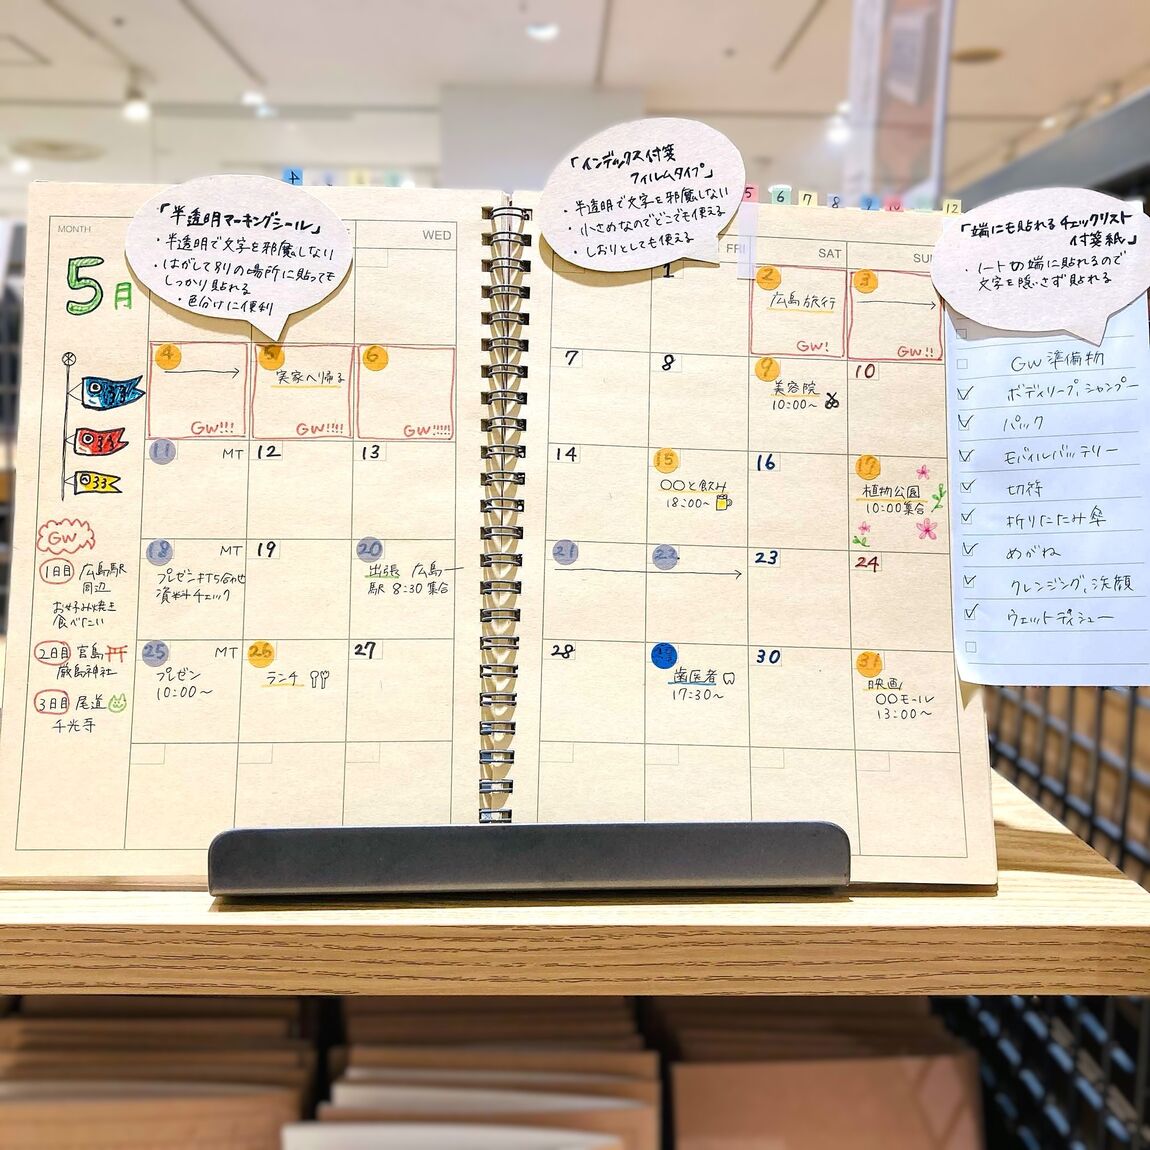 4
5
6
7
8
9
10
12
「半透明マーキングシール」
・半透明で文字を邪魔しない
・はがして別の場所に貼っても
しっかり貼れる
・色分けに便利
「インデックス付箋
フィルムタイプ」
・半透明で文字を邪魔しない
・小さめなのでどこでも使える
・しおりとしても使える
「端にも貼れるチェックリスト
付箋紙」
・ノートの端に貼れるので
文字を隠さず貼れる
MONTH
5月
WED
FRI
SAT
SUN
1
2
広島旅行
GW!
3
GW!!
4
GW!!!
5
実家へ帰る
GW!!!!
6
GW!!!!!
7
8
9
美容院
10:00〜
10
11
MT
12
13
14
15
〇〇と飲み
18:00〜
16
17
植物公園
10:00集合
18
MT
プレゼン打ち合わせ
資料チェック
19
20
出張 広島
駅 8:30 集合
21
22
23
24
25
MT
プレゼン
10:00〜
26
ランチ
27
28
29
歯医者
17:30〜
30
31
映画
〇〇モール
13:00〜
GW
1日目 広島駅
周辺
お好み焼き
食べたい
2日目 宮島
厳島神社
3日目 尾道
千光寺
GW 準備物
ボディソープ、シャンプー
パック
モバイルバッテリー
切符
折りたたみ傘
めがね
クレンジング、洗顔
ウェットティシュー